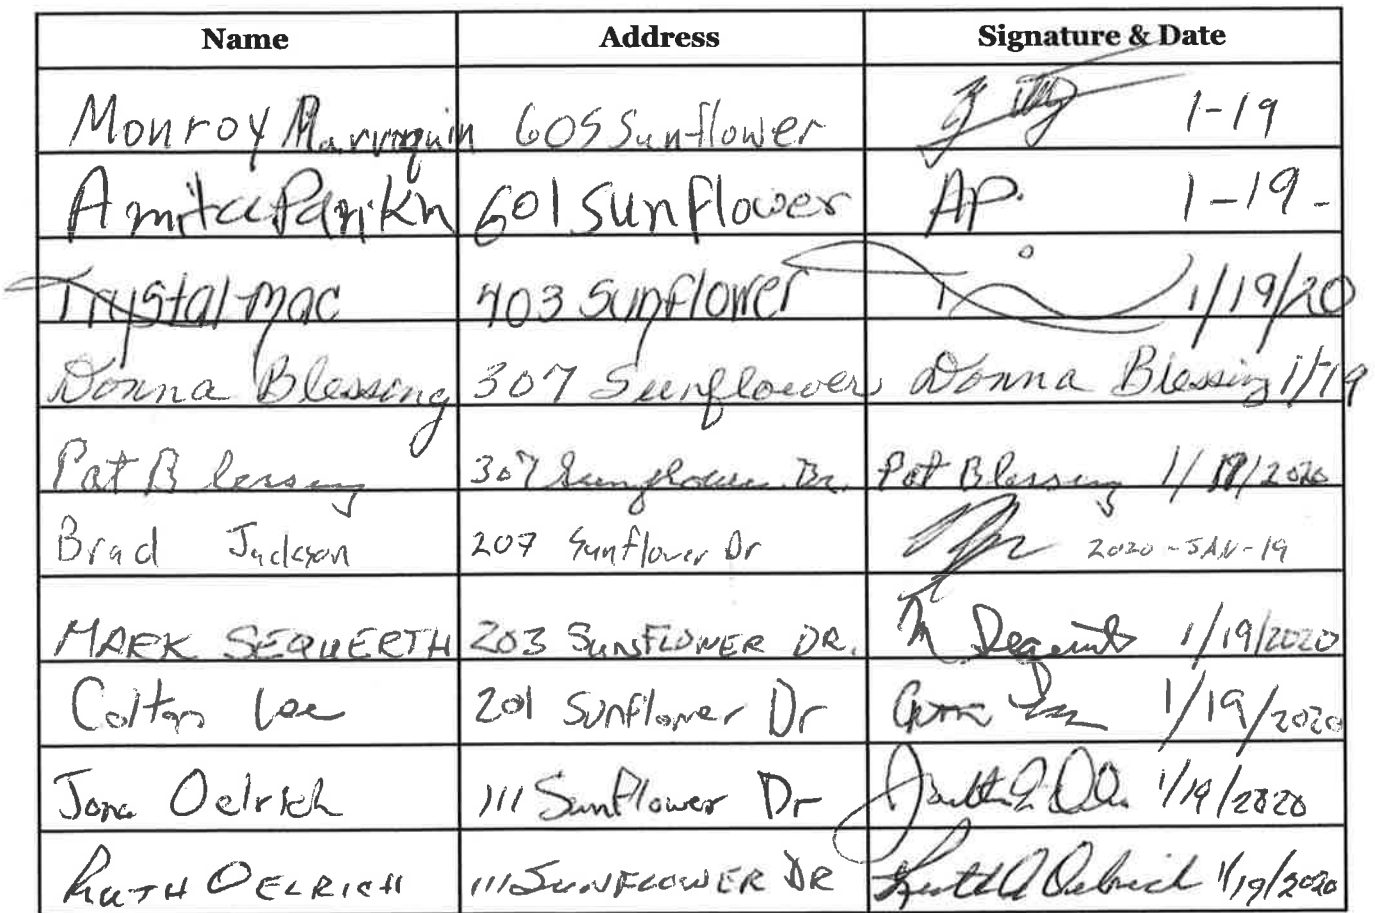 Name Address Signature & Date
Monroy Marroquin 605 Sunflower 1-19
Amita Parikh 601 Sunflower AP. 1-19-
Trystal Mac 403 Sunflower 1/19/20
Donna Blessing 307 Sunflower Donna Blessing 1/19
Pat Blessing 307 Sunflower Dr. Pat Blessing 1/19/2020
Brad Jackson 207 Sunflower Dr 2020-JAN-19
MARK SEQUERTH 203 SUNFLOWER DR. 1/19/2020
Colton Lee 201 Sunflower Dr 1/19/2020
Jona Oelrich 111 Sunflower Dr 1/19/2020
RUTH OELRICH 111 SUNFLOWER DR Ruth A Oelrich 1/19/2020